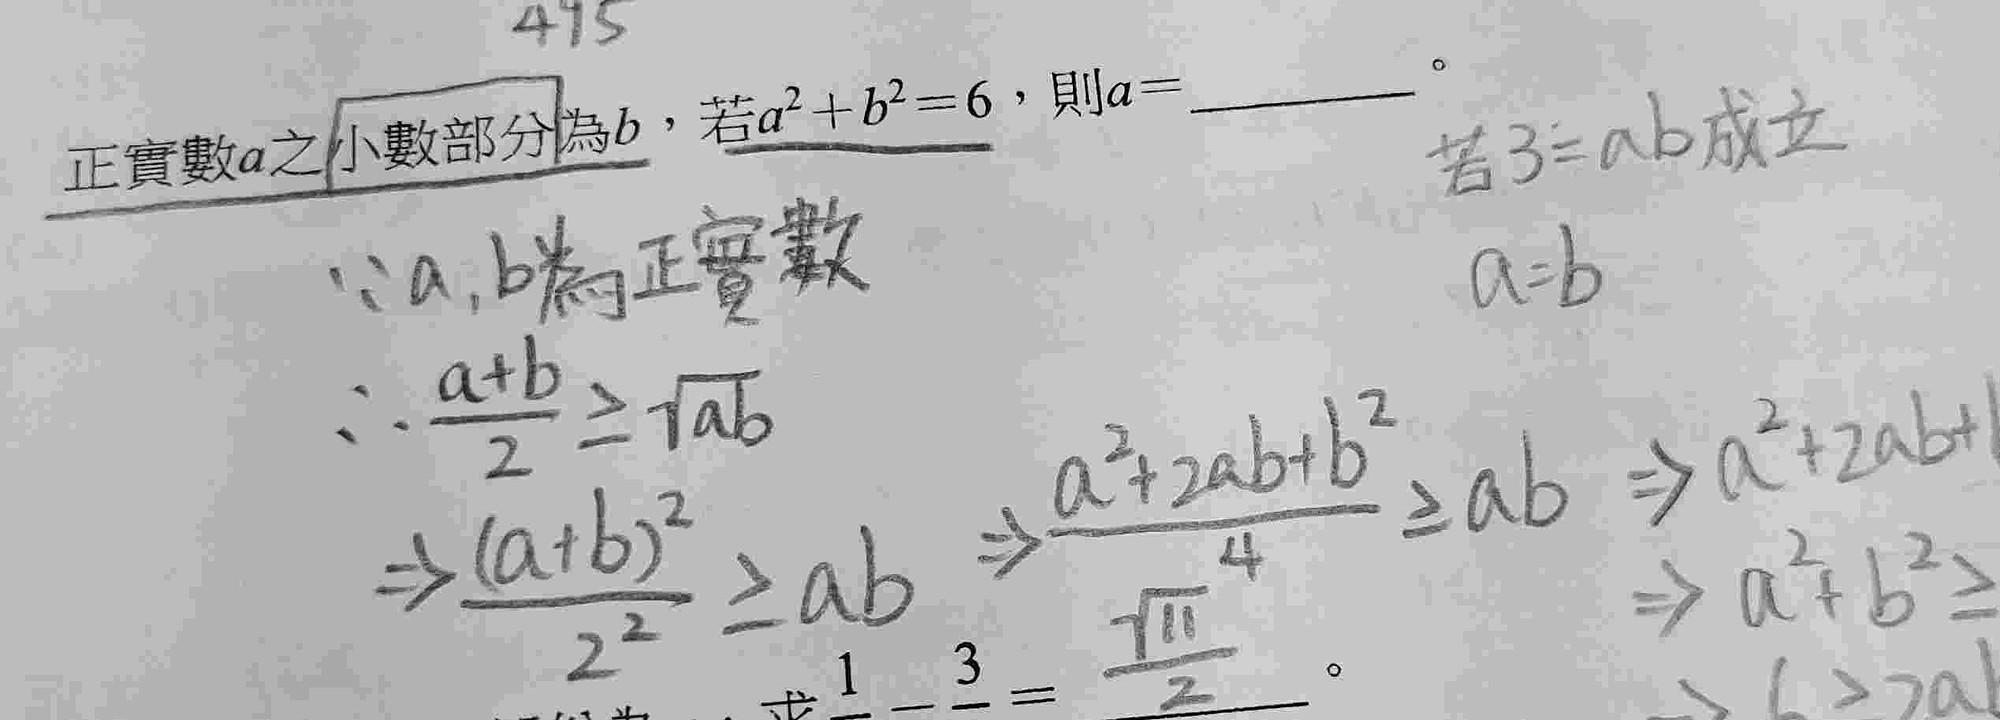 495
正實數a之小數部分為b，若a²+b²=6，則a=________。
若3=ab成立
a=b
∵a,b為正實數
∴ (a+b)/2 ≥ √ab
⇒ (a+b)²/2² ≥ ab ⇒ (a²+2ab+b²)/4 ≥ ab ⇒ a²+2ab+
⇒ a²+b² ≥
⇒ 6 ≥ 2ab
求 1 − 3 = √11/2 。